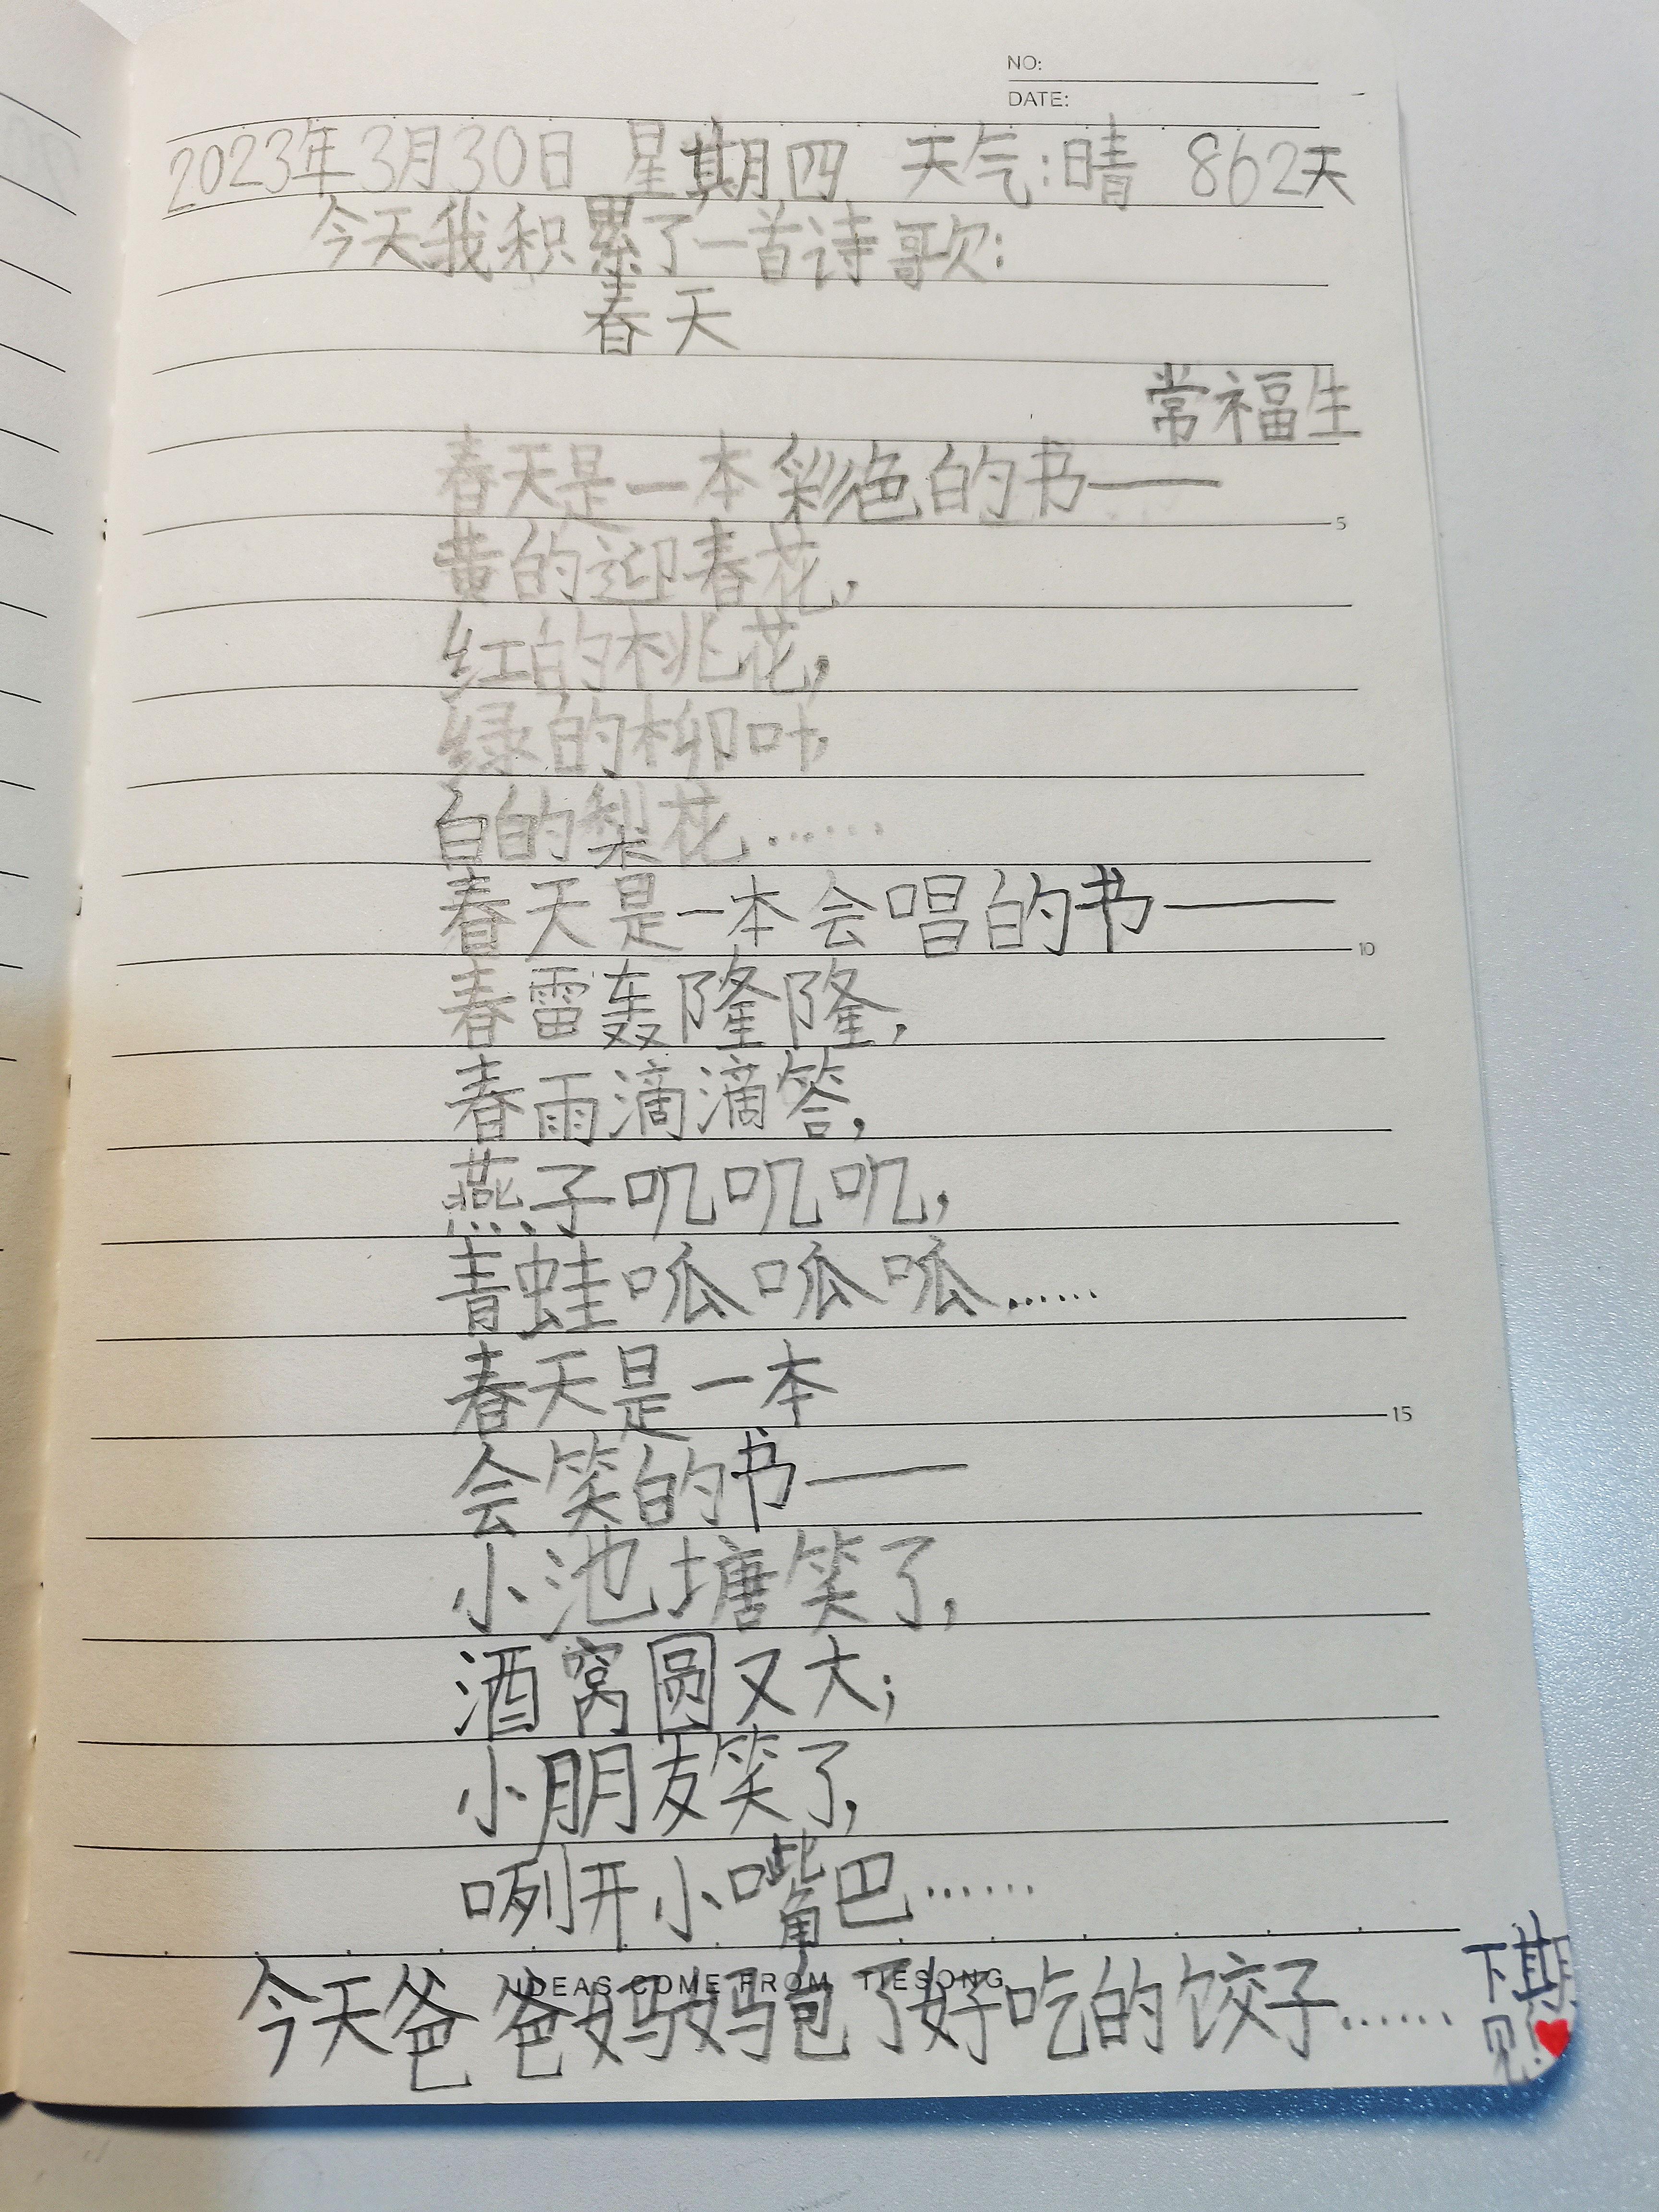 NO:
DATE:
2023年3月30日 星期四 天气:晴 862天
今天我积累了一首诗歌:
春天
常福生
春天是一本彩色的书——
黄的迎春花,
红的桃花,
绿的柳叶,
白的梨花……
5
春天是一本会唱的书——
10
春雷轰隆隆,
春雨滴滴答,
燕子叽叽叽,
青蛙呱呱呱……
春天是一本
15
会笑的书——
小池塘笑了,
酒窝圆又大;
小朋友笑了,
咧开小嘴巴……
IDEAS COME FROM TIESONG
今天爸爸妈妈包了好吃的饺子……
下期
见!